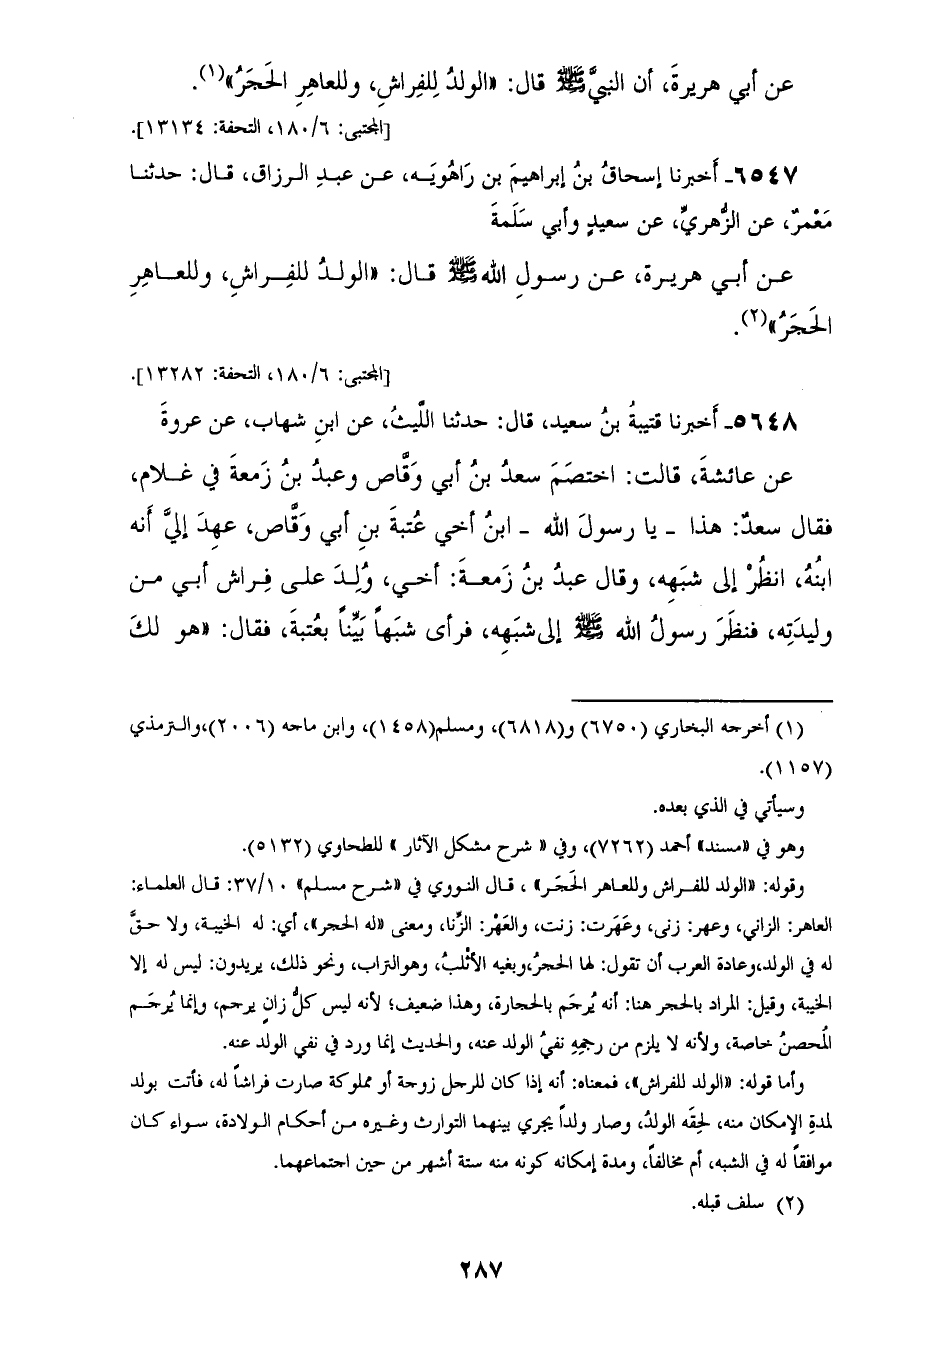 عن أبي هريرةَ، أن النبيَّ ﷺ قال: «الولدُ لِلفِراشِ، وللعاهِرِ الحَجَرُ»(١).
[المجتبى: ١٨٠/٦، التحفة: ١٣١٣٤].
٦٥٤٧ـ أَخبرنا إسحاقُ بنُ إبراهيمَ بن رَاهُويَـه، عـن عبـدِ الـرزاق، قـال: حدثنـا
مَعْمرٌ، عن الزُّهريِّ، عن سعيدٍ وأبي سَلَمةَ
عـن أبـي هريـرة، عـن رسـولِ الله ﷺ قـال: «الولـدُ للفِـراشِ، وللعـاهِرِ
الحَجَرُ»(٢).
[المجتبى: ١٨٠/٦، التحفة: ١٣٢٨٢].
٥٦٤٨ـ أَخبرنا قتيبةُ بنُ سعيد، قال: حدثنا اللَّيثُ، عن ابنِ شهاب، عن عروةَ
عن عائشةَ، قالت: اختصَمَ سعدُ بنُ أبي وَقَّاص وعبدُ بنُ زَمعةَ في غـلام،
فقال سعدٌ: هذا ـ يا رسولَ الله ـ ابنُ أخي عُتبةَ بنِ أبي وَقَّاص، عهِدَ إليَّ أَنه
ابنُهُ، انظُرْ إلى شبَهِه، وقال عبدُ بنُ زَمعـةَ: أخي، وُلِـدَ علـى فِـراش أبـي مـن
وليدَتِه، فنظَرَ رسولُ الله ﷺ إلى شبَهِه، فرأى شبَهاً بَيِّناً بعُتبةَ، فقال: «هو لكَ
(١) أخرجه البخاري (٦٧٥٠) و(٦٨١٨)، ومسلم(١٤٥٨)، وابن ماجه (٢٠٠٦)،والـترمذي
(١١٥٧).
وسيأتي في الذي بعده.
وهو في «مسند» أحمد (٧٢٦٢)، وفي « شرح مشكل الآثار » للطحاوي (٥١٣٢).
وقوله: «الولد للفـراش وللعاهر الحَجَر» ، قـال النـووي في «شـرح مسلم» ٣٧/١٠: قـال العلمـاء:
العاهر: الزاني، وعهر: زنى، وعَهَرت: زنت، والعَهْر: الزِّنا، ومعنى «له الحجر»، أي: له الخيبة، ولا حـقَّ
له في الولد،وعادة العرب أن تقول: لها الحجرُ،وبغيه الأَثْلبُ، وهوالتراب، ونحو ذلك، يريدون: ليس له إلا
الخيبة، وقيل: المراد بالحجر هنا: أنه يُرجَم بالحجارة، وهذا ضعيف؛ لأنه ليس كلُّ زانٍ يرجم، وإنما يُرجَـم
المُحصنُ خاصة، ولأنه لا يلزم من رجمِهِ نفيُ الولد عنه، والحديث إنما ورد في نفي الولد عنه.
وأما قوله: «الولد للفراش»، فمعناه: أنه إذا كان للرجل زوجة أو مملوكة صارت فراشاً له، فأتت بولد
لمدةِ الإمكان منه، لحِقَه الولدُ، وصار ولداً يجري بينهما التوارث وغيره مـن أحكام الـولادة، سـواء كـان
موافقاً له في الشبه، أم مخالفاً، ومدة إمكانه كونه منه ستة أشهر من حين اجتماعهما.
(٢) سلف قبله.
٢٨٧